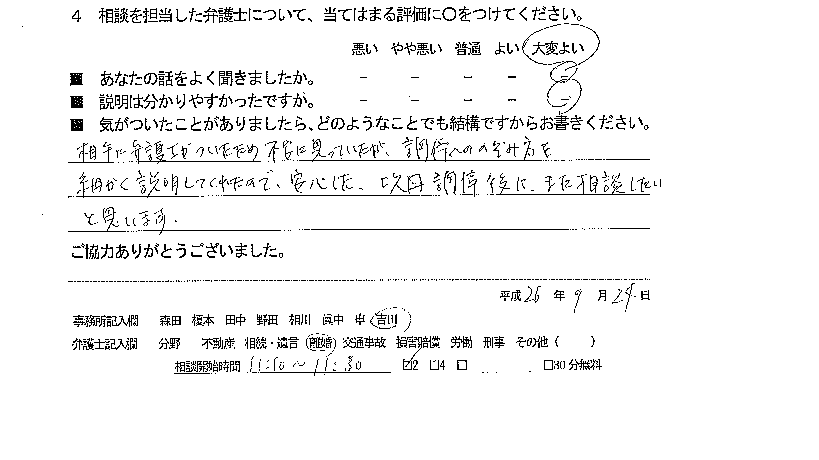 4 相談を担当した弁護士について、当てはまる評価に〇をつけてください。
悪い やや悪い 普通 よい 大変よい
■ あなたの話をよく聞きましたか。 － － － － －
■ 説明は分かりやすかったですが。 － － － － －
■ 気がついたことがありましたら、どのようなことでも結構ですからお書きください。
相手に弁護士がついたため不安に思っていたが、調停へののぞみ方を
細かく説明してくれたので、安心した。次回調停後に、また相談したい
と思います。
ご協力ありがとうございました。
平成 26 年 9 月 24 日
事務所記入欄 森田 榎本 田中 野田 相川 眞中 吉川
弁護士記入欄 分野 不動産 相続・遺言 離婚 交通事故 損害賠償 労働 刑事 その他 ( )
相談開始時間 11:10～11:30 ☑2 □4 □ □30分無料